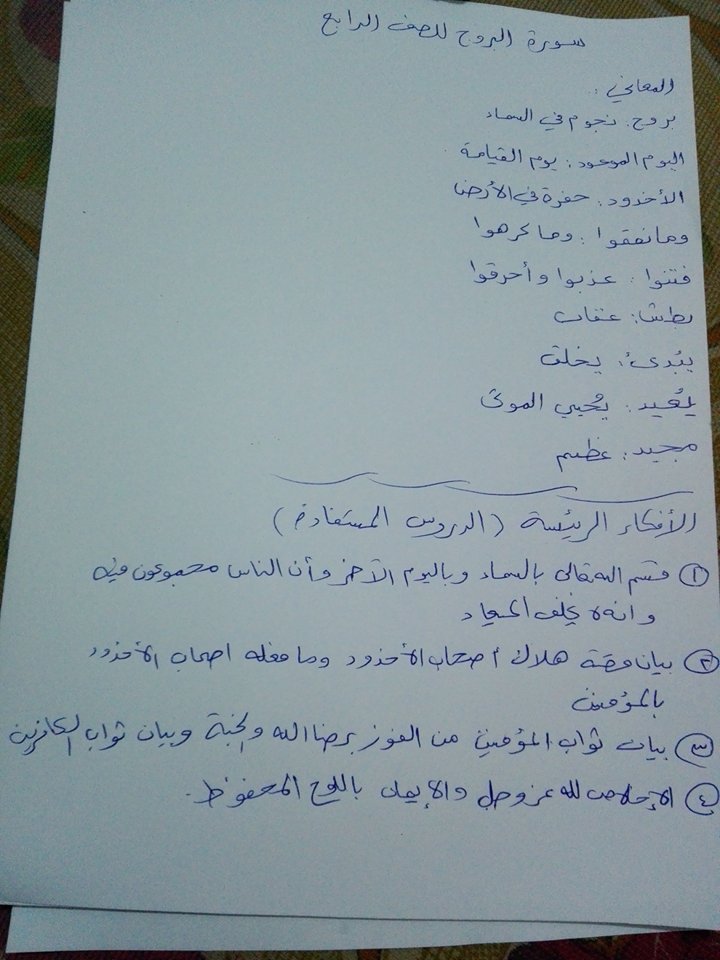 سورة البروج للصف الرابع
المعاني :
بروج : نجوم في السماء
اليوم الموعود : يوم القيامة
الأخدود : حفرة في الأرض
وما نقموا : وما كرهوا
فتنوا : عذبوا وأحرقوا
بطش : عقاب
يبدئ : يخلق
يعيد : يحيي الموتى
مجيد : عظيم
الأفكار الرئيسة ( الدروس المستفادة )
١ قسم الله تعالى بالسماء وباليوم الآخر وأن الناس مجموعون فيه
وانه لا يخلف الميعاد
٢ بيان قصة هلاك أصحاب الأخدود وما فعله اصحاب الأخدود
بالمؤمنين
٣ بيان ثواب المؤمنين من الفوز برضا الله والجنة وبيان ثواب الكافرين
٤ الإخلاص لله عز وجل والإيمان باللوح المحفوظ .